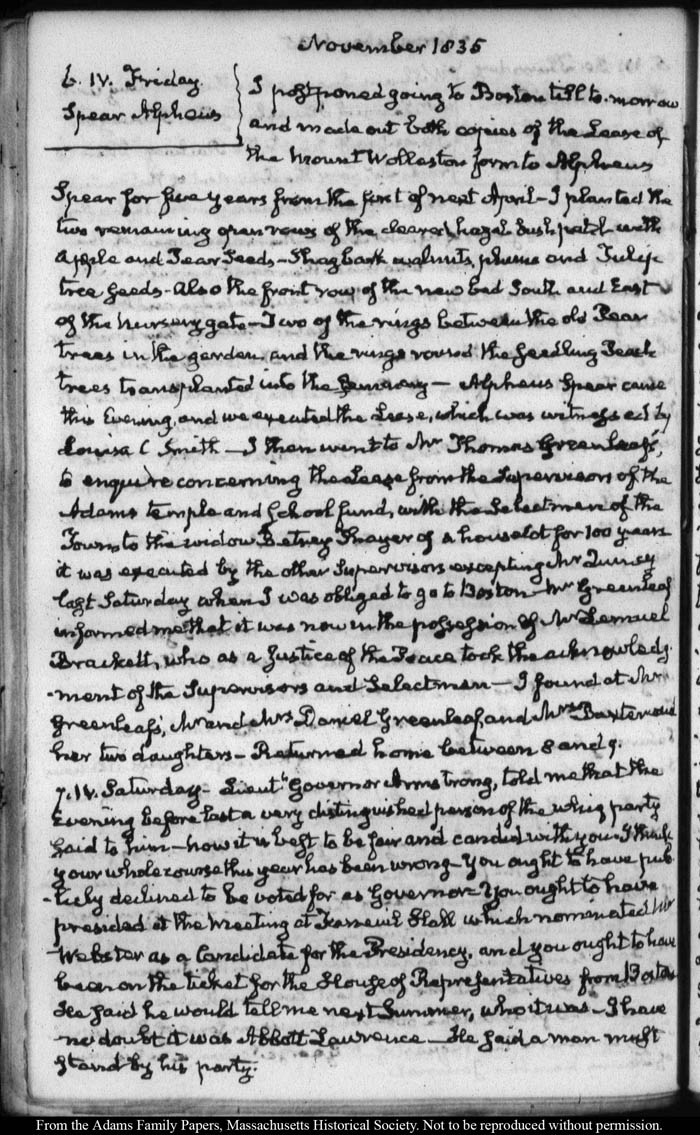 November 1835
6. IV. Friday.
Spear Alpheus
I postponed going to Boston till to-morrow
and made out both copies of the Lease of
the Mount Wollaston farm to Alpheus
Spear for five years from the first of next April – I planted the
two remaining open rows of the cleared hazel bush patch with
Apple and Pear seeds – Shagbark walnuts, plums and Tulip
tree seeds – Also the front row of the new bed South and East
of the Nursery gate – Two of the rings between the old Pear
trees in the garden and the rings round the seedling Peach
trees transplanted into the – Alpheus Spear came
this Evening, and we executed the Lease, which was witnessed by
Louisa C Smith – I then went to Mr Thomas Greenleaf's,
to enquire concerning the Lease from the Supervisors of the
Adams temple and School fund, with the Selectmen of the
Town to the widow Betsey Thayer of a house lot for 100 years
it was executed by the other Supervisors excepting Mr Quincy
last Saturday when I was obliged to go to Boston – Mr Greenleaf
informed me that it was now in the possession of Mr Lemuel
Brackett, who as a Justice of the Peace took the acknowledg-
-ment of the Supervisors and Selectmen – I found at Mr
Greenleaf's, Mr and Mrs Daniel Greenleaf, and Mrs Baxter and
her two daughters – Returned home between 8 and 9.
7. IV. Saturday – Lieutt Governor Armstrong, told me that the
Evening before last a very distinguished person of the whig party
said to him – now it is best to be fair and candid with you. I think
your whole course this year has been wrong – You ought to have pub-
-licly declined to be voted for as Governor – You ought to have
presided at the meeting at Faneuil Hall which nominated Mr
Webster as a Candidate for the Presidency, and you ought to have
been on the ticket for the House of Representatives from Boston
He said he would tell me next Summer, who it was – I have
no doubt it was Abbott Lawrence – He said a man must
stand by his party.
From the Adams Family Papers, Massachusetts Historical Society. Not to be reproduced without permission.